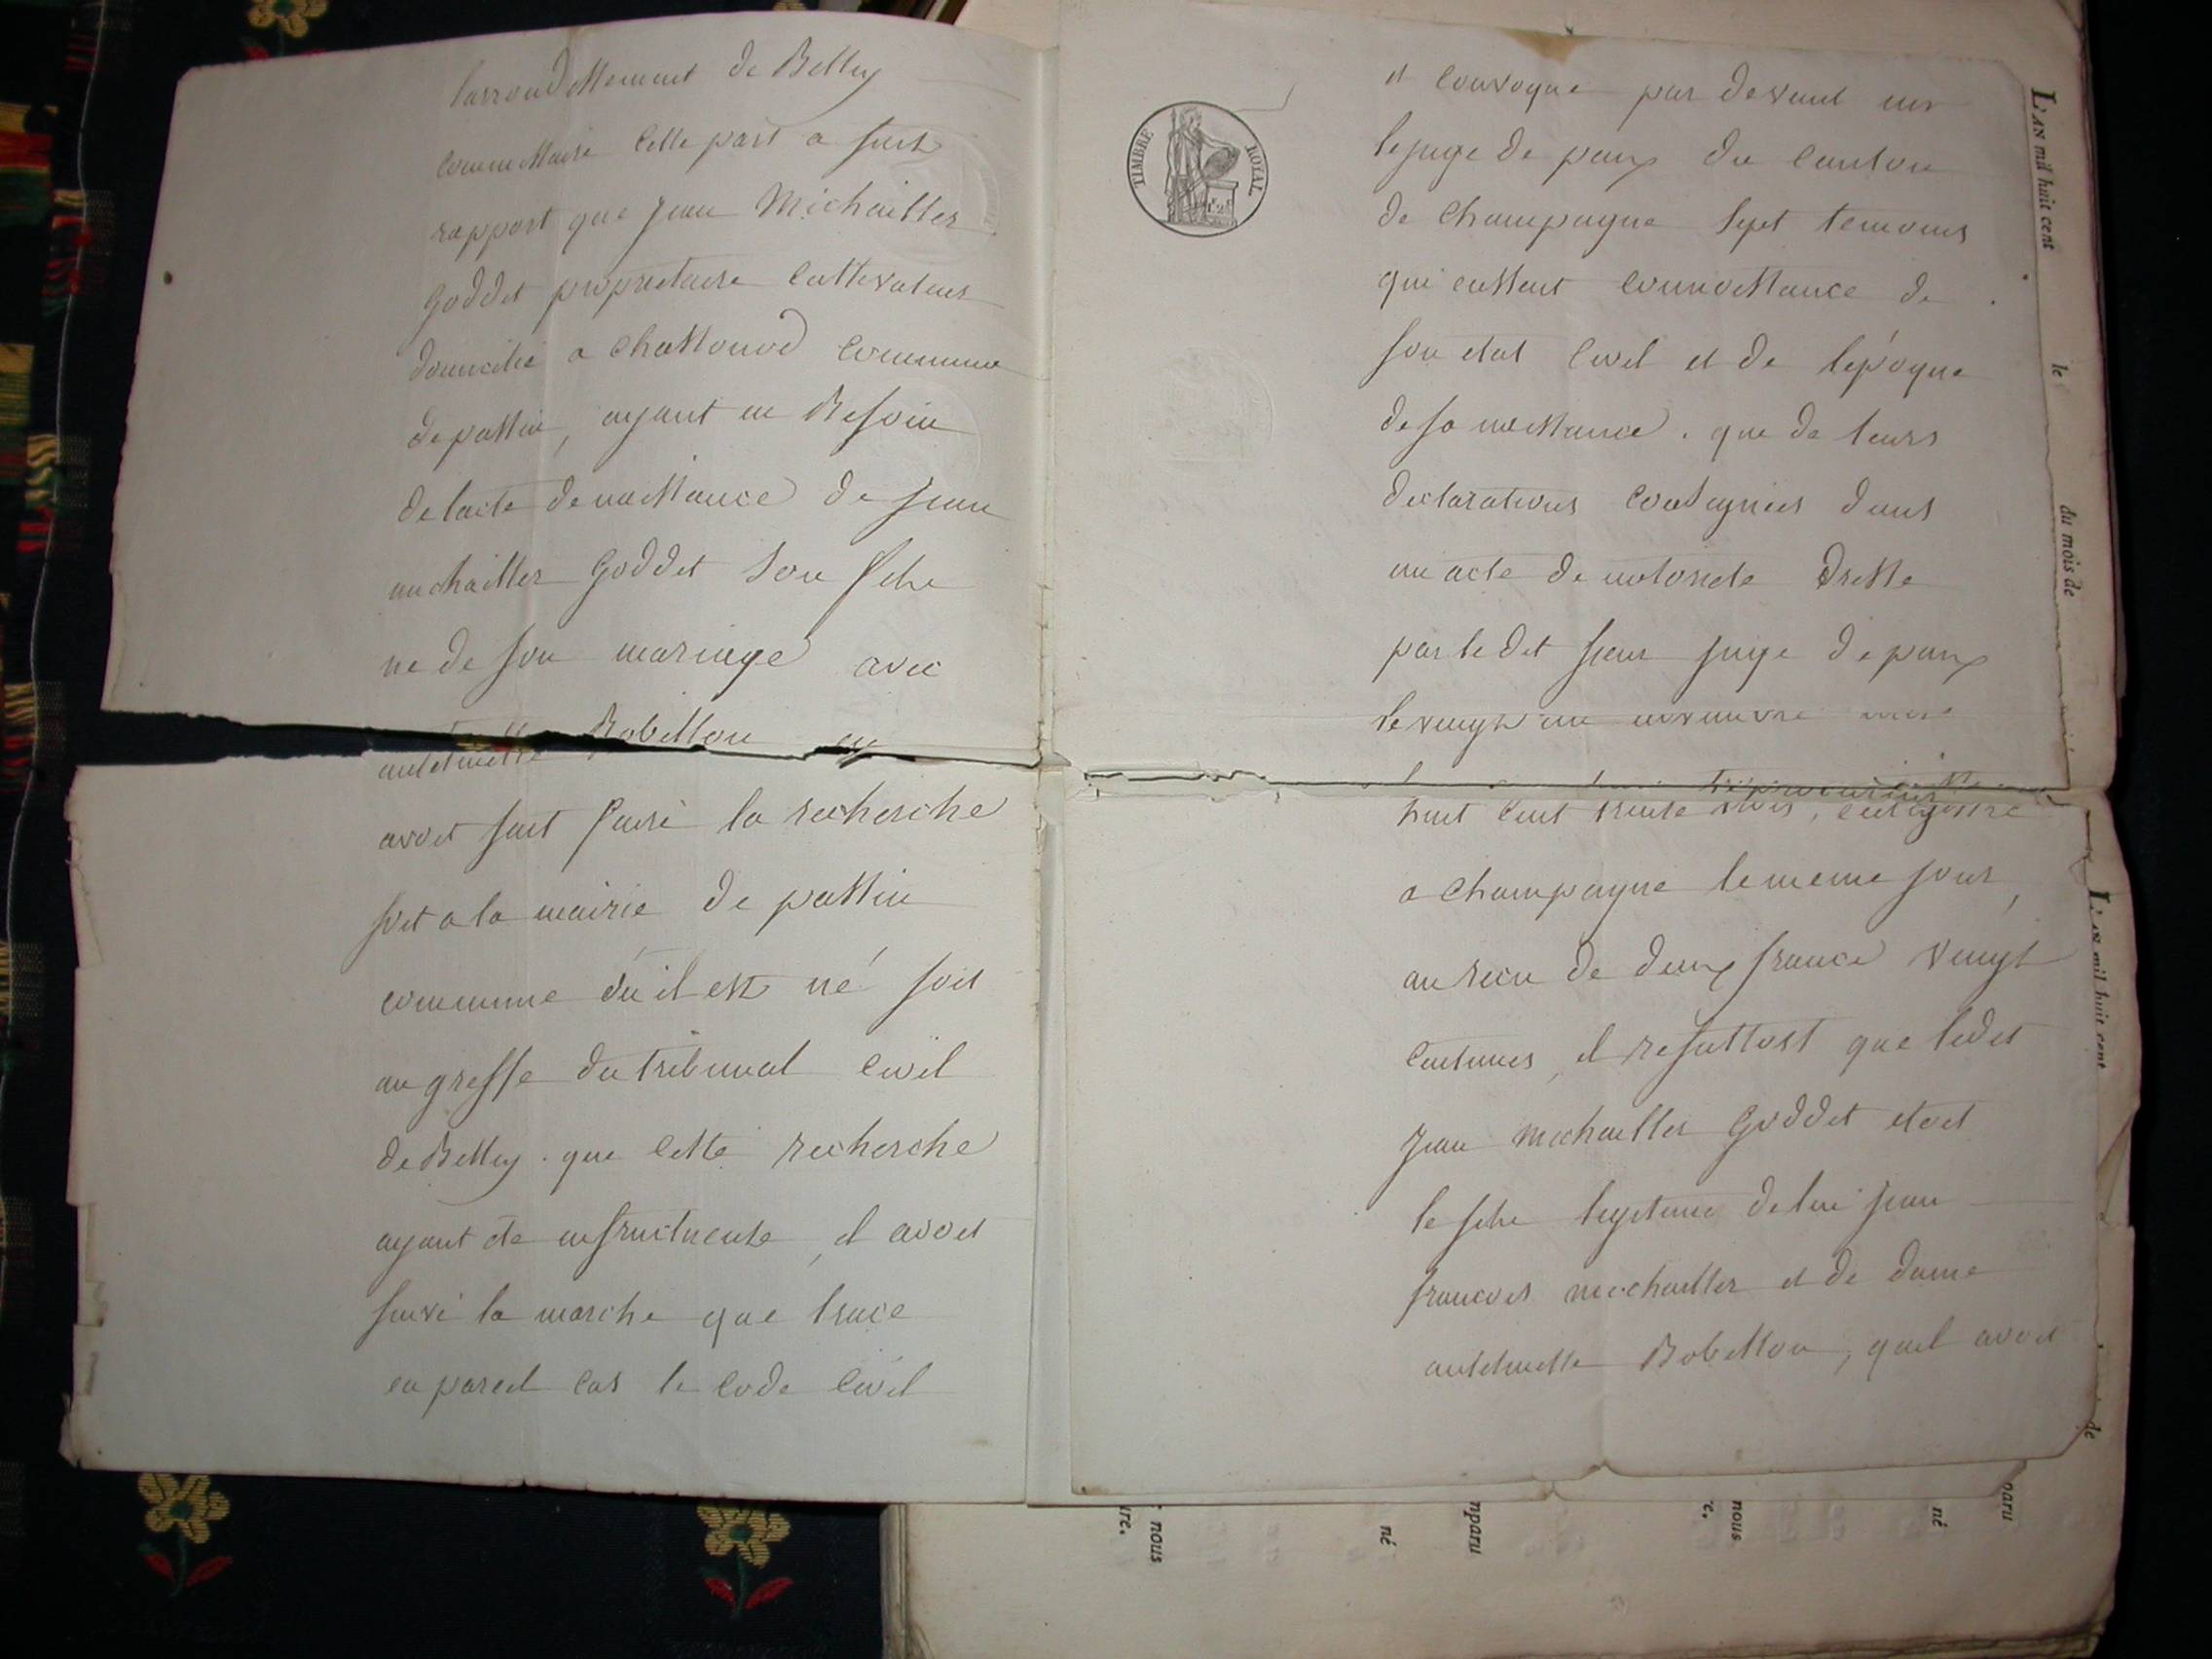 larrondissement de Belley
commissaire cette part a fait
rapport que Jean Michailler
Goddet proprietaire cultivateur
domicilié a Chassonod commune
de passin, ayant eu Besoin
de lacte de naissance de Jean
michailler Goddet son fils
ne de son mariage avec
antelmette Robellou
avoit fait faire la recherche
soit a la mairie de passin
commune où il est né soit
au greffe du tribunal civil
de Belley. que cette recherche
ayant été infructueuse, il avoit
suivi la marche que trace
en pareil cas le code civil
TIMBRE ROYAL
et convoqué par devant
le juge de paix du canton
de Champagne sept temoins
qui eussent connoissance de
son etat civil et de lépoque
de sa naissance. que de leurs
declarations consignées dans
un acte de notoriete dressé
par le dit sieur juge de paix
le vingt un novembre
huit cent trente trois, enregistré
a Champagne le meme jour,
au recu de deux francs vingt
centimes, il resultoit que ledit
Jean michailler Goddet etoit
le fils legitime de lui Jean
francois michailler et de dame
antelmette Robellou, quil avoit
L'AN mil huit cent le du mois de
L'AN mil huit cent de
ure.
nous
né
mparu
re.
nous
né
paru